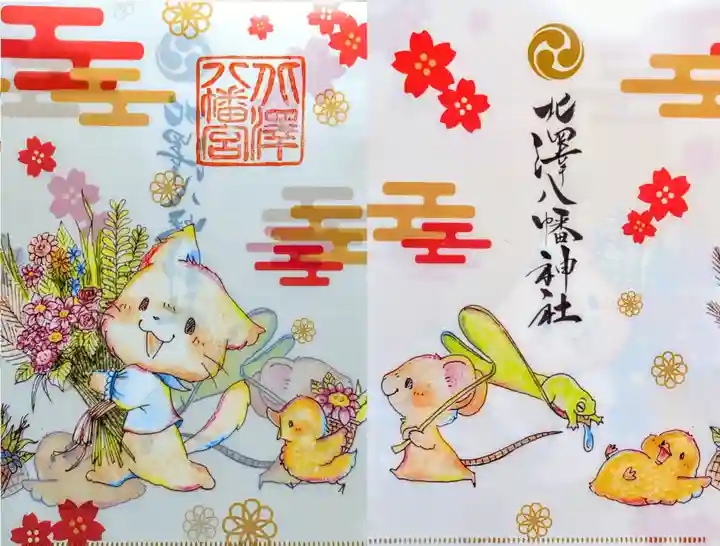 北澤
八幡宮
北澤八幡神社